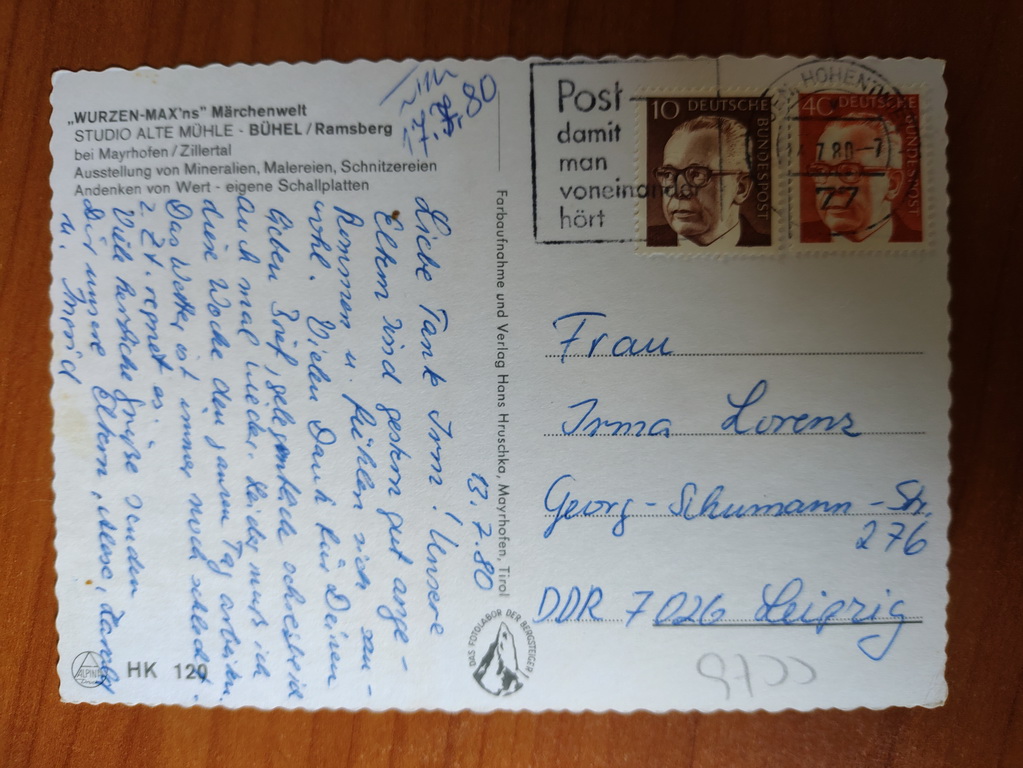 „WURZEN-MAX'ns" Märchenwelt
STUDIO ALTE MÜHLE - BÜHEL/Ramsberg
bei Mayrhofen/Zillertal
Ausstellung von Mineralien, Malereien, Schnitzereien
Andenken von Wert - eigene Schallplatten
80
13.7.80
Liebe Tante Irm! Unsere
Eltern sind gestern gut ange-
kommen u. fühlen sich sau-
wohl. Vielen Dank für Deinen
lieben Brief, gelegentlich schreibe ich
auch mal wieder. Leider muss ich
diese Woche den ganzen Tag arbeiten.
Das Wetter ist immer noch schlecht.
z. Zt. regnet es.
Viele herzliche Grüße senden
Dir unsere Eltern,
u. Ingrid
HK 120
ALPINA
Farbaufnahme und Verlag Hans Hruschka, Mayrhofen, Tirol
DAS FOTOLABOR DER BERGSTEIGER!
Post
damit
man
voneinander
hört
10 DEUTSCHE
BUNDESPOST
40 DEUTSCHE
BUNDESPOST
7.80-7
77
Frau
Irma Lorenz
Georg-Schumann-Str.
276
DDR 7026 Leipzig